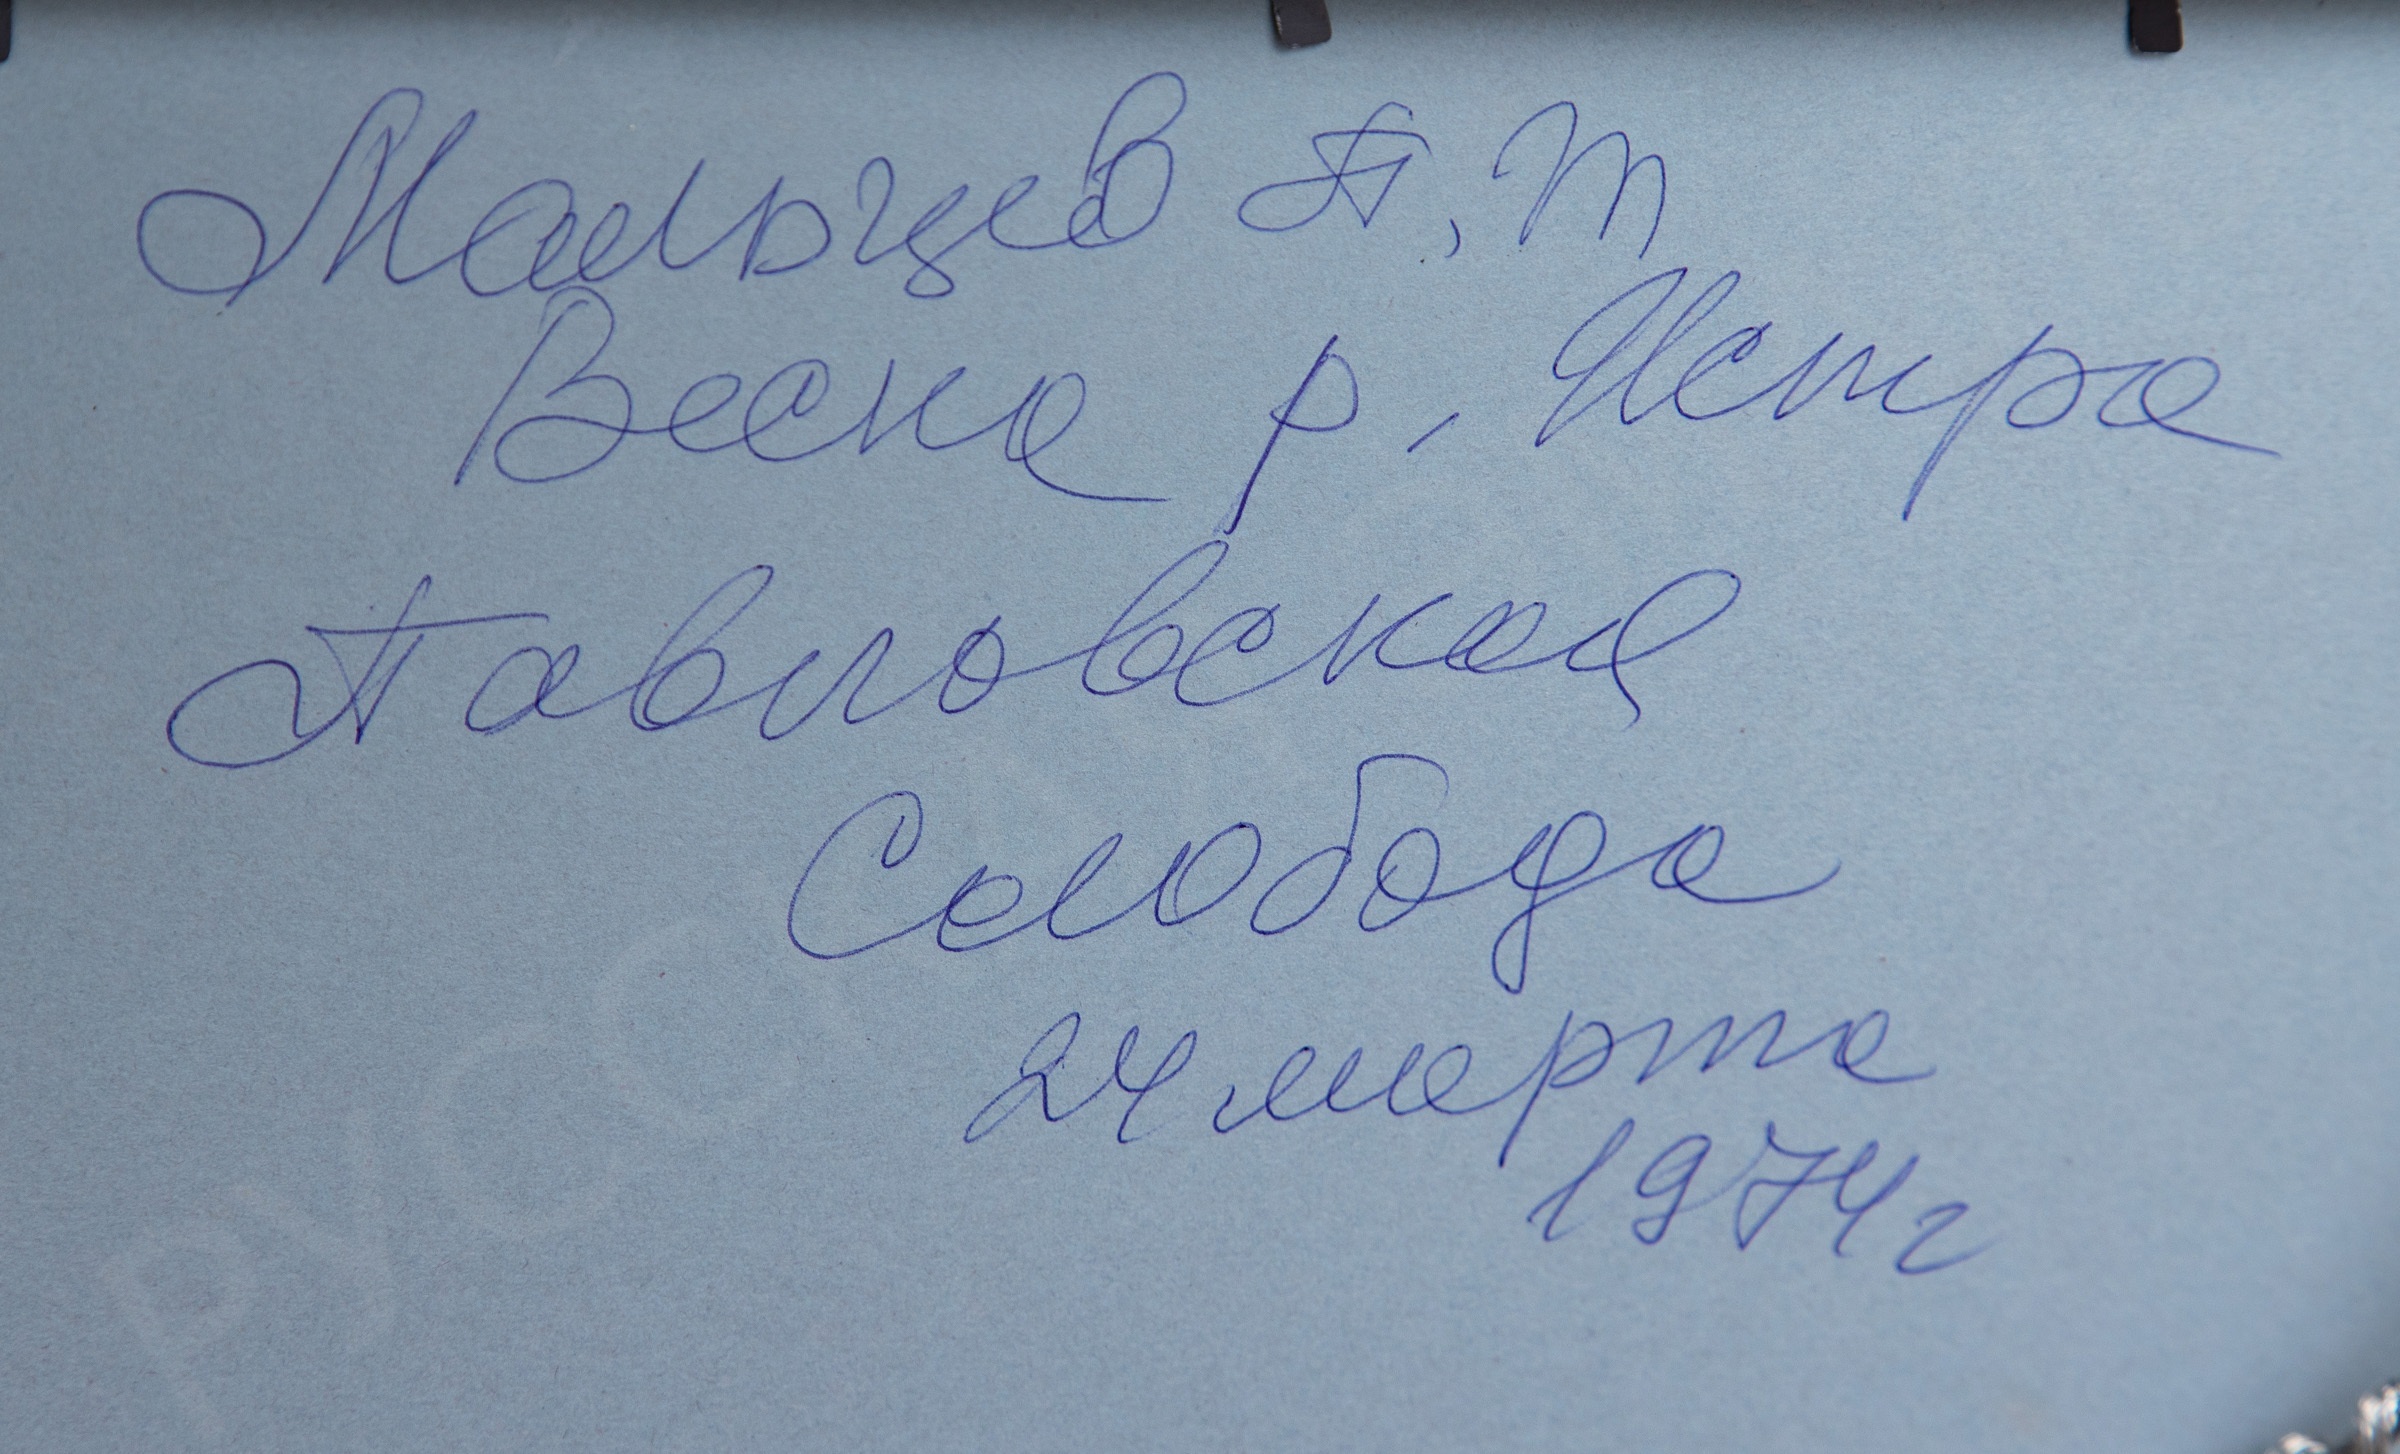 Мальцев П, Т
Весна р. Истра
Павловская
Слобода
24 марта
1974г